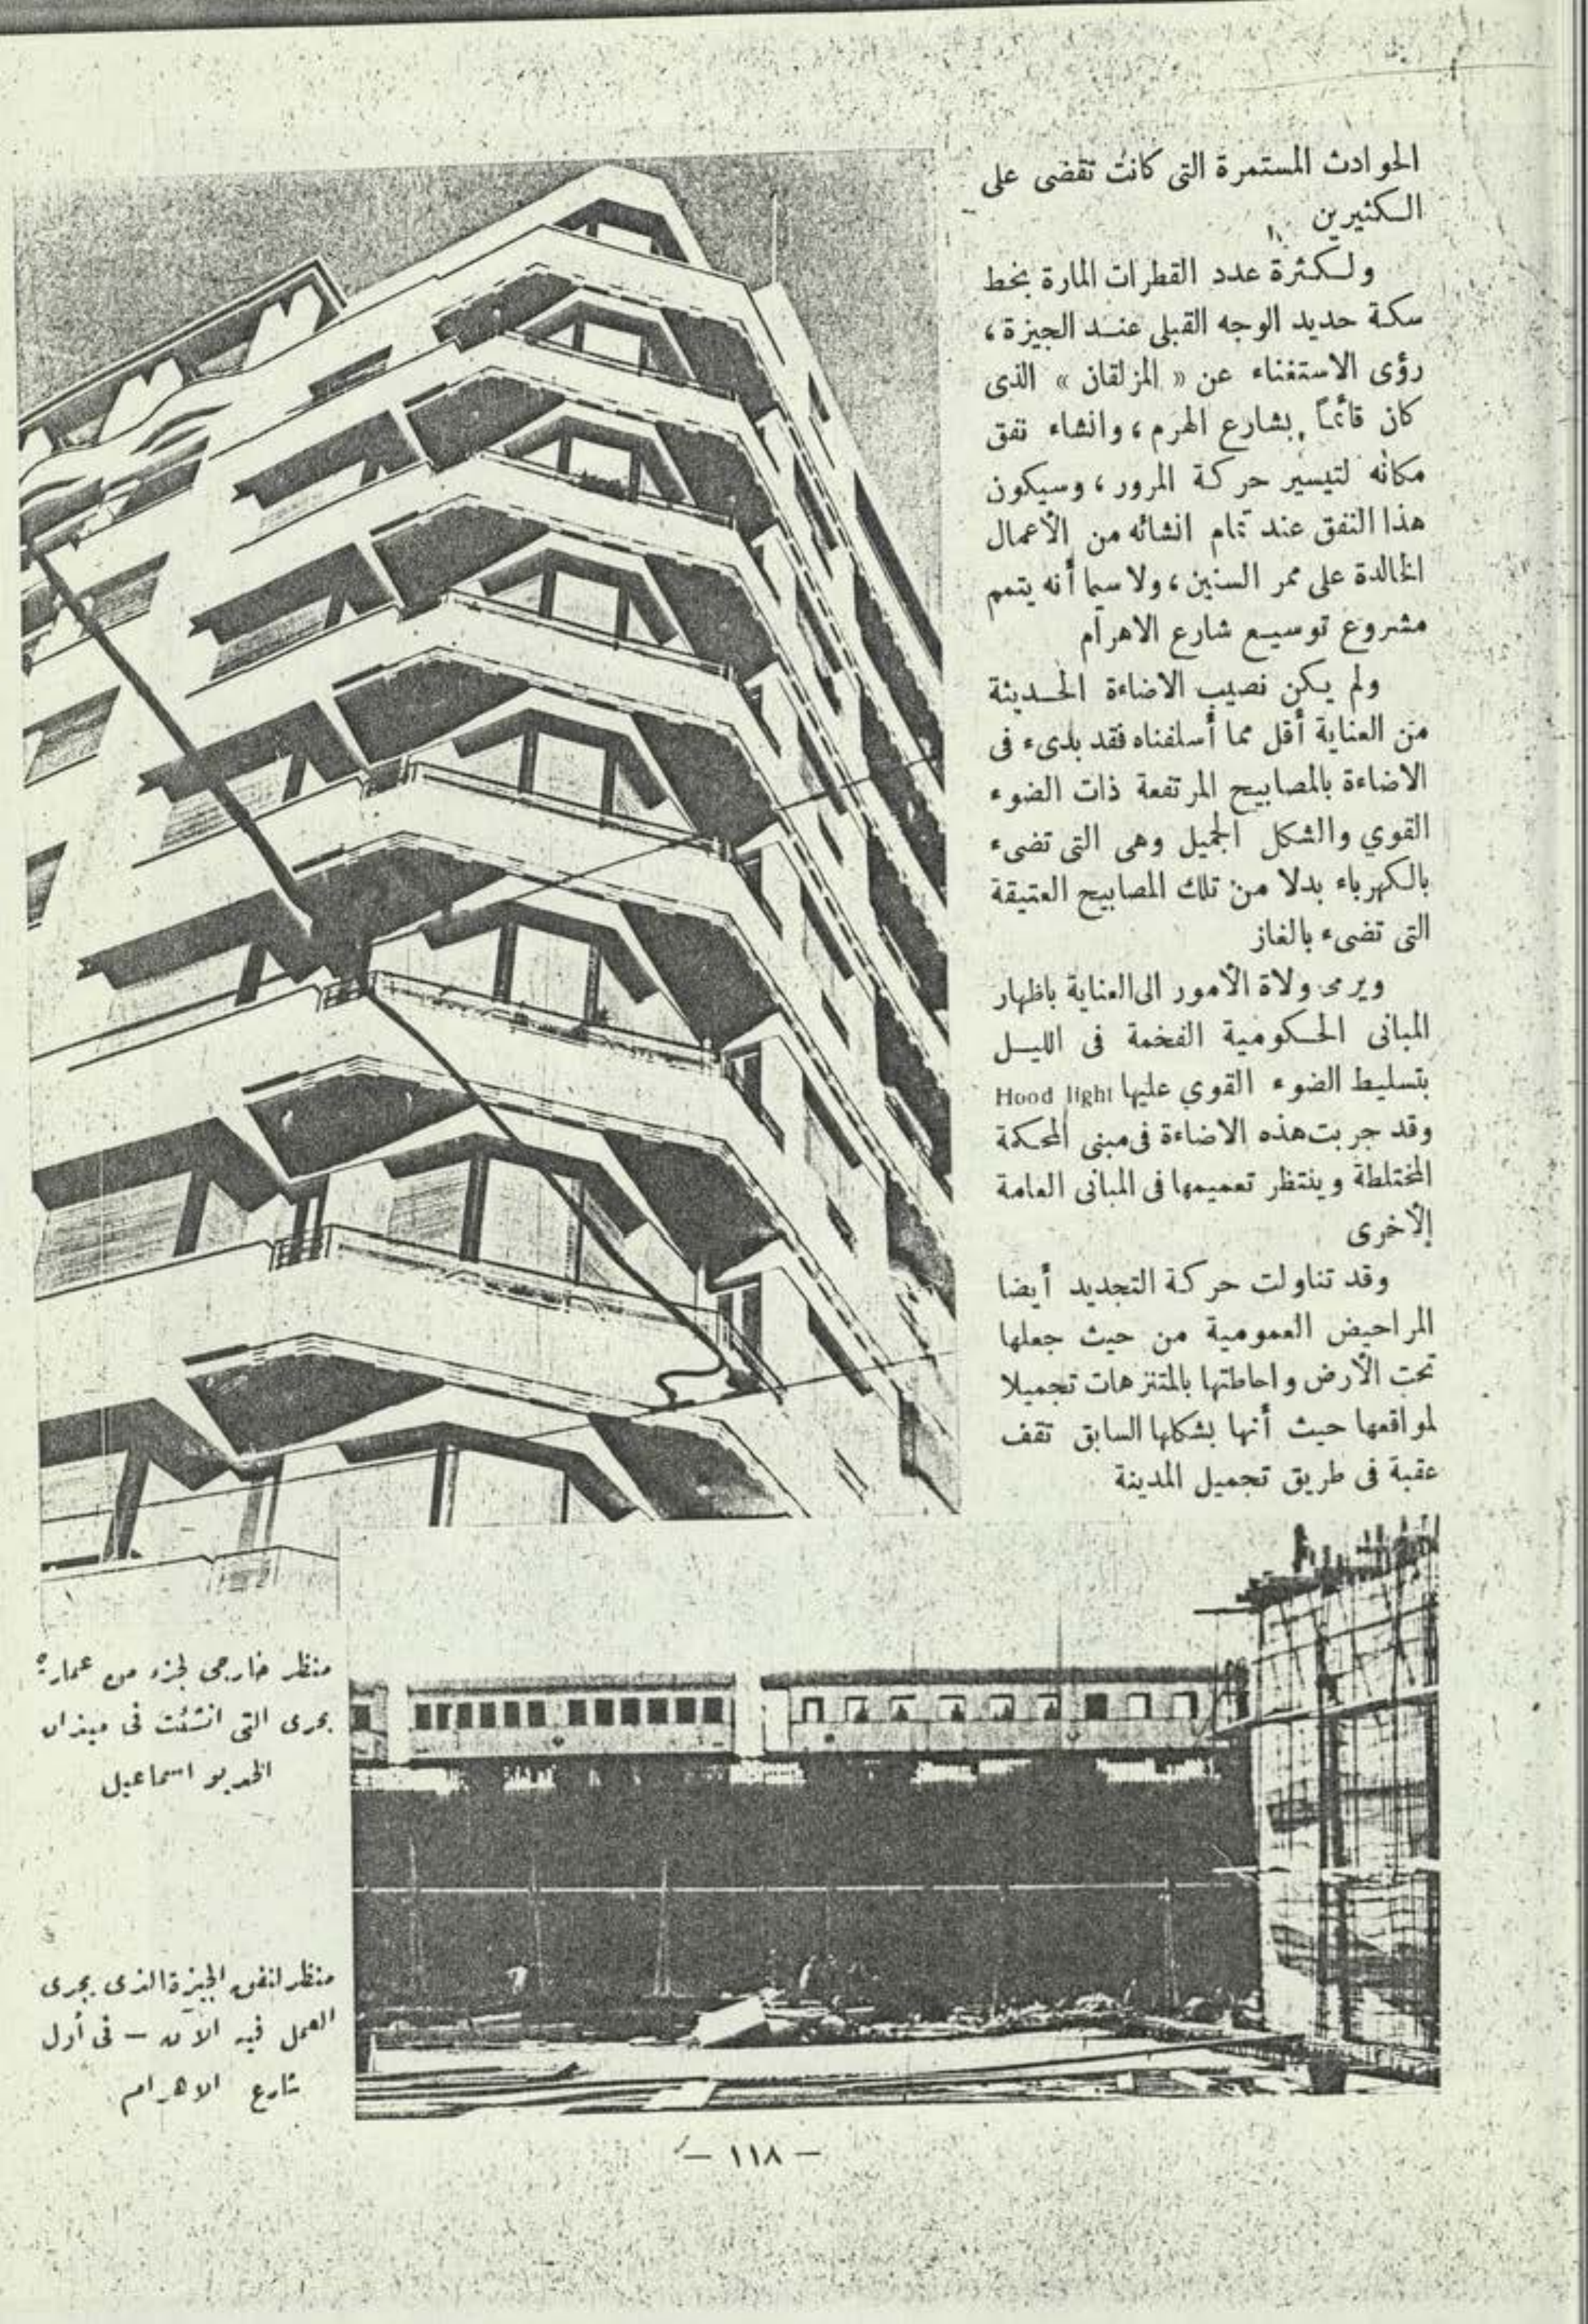 الحوادث المستمرة التى كانت تقضى على
الكثيرين
ولكثرة عدد القطرات المارة بخط
سكة حديد الوجه القبلى عند الجيزة ،
رؤى الاستغناء عن « المزلقان » الذى
كان قائماً بشارع الهرم ، وانشاء نفق
مكانه لتيسير حركة المرور ، وسيكون
هذا النفق عند تمام انشائه من الأعمال
الخالدة على ممر السنين ، ولا سيما أنه يتمم
مشروع توسيع شارع الاهرام
ولم يكن نصيب الاضاءة الحديثة
من العناية أقل مما أسلفناه فقد بدىء فى
الاضاءة بالمصابيح المرتفعة ذات الضوء
القوي والشكل الجميل وهى التى تضىء
بالكهرباء بدلا من تلك المصابيح العتيقة
التى تضىء بالغاز
ويرمى ولاة الأمور الى العناية باظهار
المبانى الحكومية الفخمة فى الليل
بتسليط الضوء القوي عليها Hood light
وقد جربت هذه الاضاءة فى مبنى المحكمة
المختلطة وينتظر تعميمها فى المبانى العامة
الأخرى
وقد تناولت حركة التجديد أيضا
المراحيض العمومية من حيث جعلها
تحت الأرض واحاطتها بالمتنزهات تجميلا
لمواقعها حيث أنها بشكلها السابق تقف
عقبة فى طريق تجميل المدينة
منظر خارجى لجزء من عمارة
بحرى التى انشئت فى ميدان
الخديو اسماعيل
منظر لنفق الجيزة الذى يجرى
العمل فيه الآن – فى أول
شارع الاهرام
– ١١٨ –